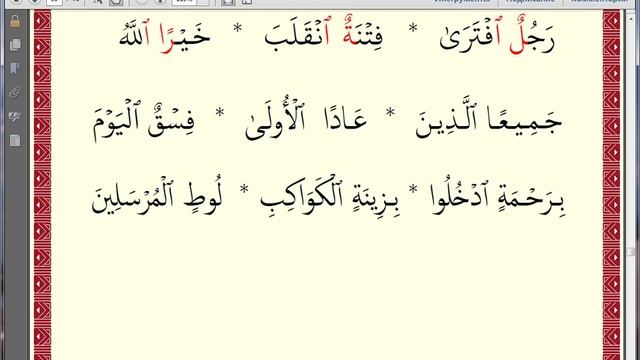 Инструменты Подписание Комментарий
رَجُلٌ ٱفْتَرَىٰ * فِتْنَةٌ ٱنْقَلَبَ * خَيْرًا ٱللَّهُ
جَمِيعًا ٱلَّذِينَ * عَادًا ٱلْأُولَىٰ * فِسْقٌ ٱلْيَوْمَ
بِرَحْمَةٍ ٱدْخُلُوا * بِزِينَةٍ ٱلْكَوَاكِبِ * لُوطٍ ٱلْمُرْسَلِينَ